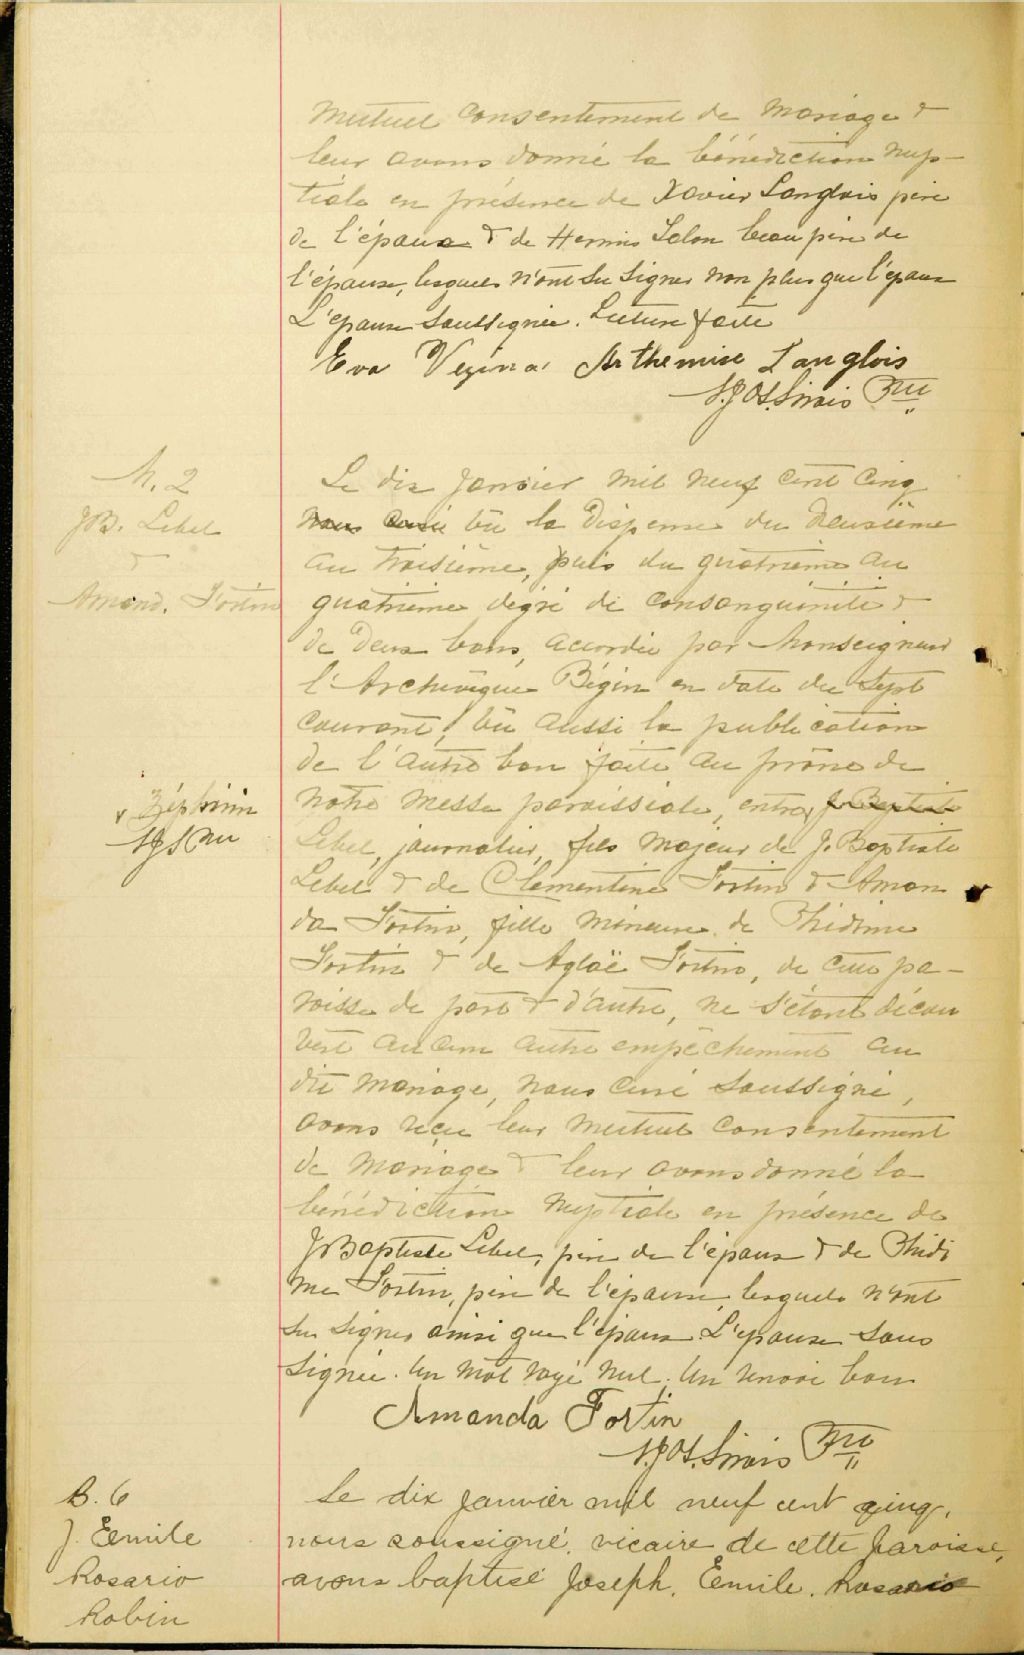 mutuel consentement de mariage &
leur avons donné la bénédiction nup-
tiale en présence de Xavier Langlois père
de l'époux & de Hermis beau père de
l'épouse, lesquels n'ont su signer non plus que l'époux
L'épouse soussignée. Lecture faite
Eva Vézina. Arthemise Langlois
Sirois Ptre
M. 2
JB. Lebel
&
Amand. Fortin
Le dix janvier mil neuf cent cinq
nous curé vu la dispense du deuxième
au troisième, puis du quatrième au
quatrième dégré de consanguinité &
de deux bans, accordée par Monseigneur
l'Archevêque Bégin en date du sept
courant, vu aussi la publication
de l'autre ban faite au prône de
notre messe paroissiale, entre, J. Baptiste
x Zéphirin
Lebel, journalier, fils majeur de J. Baptiste
Lebel & de Clementine Fortin & Aman
da Fortin, fille mineure de Phidime
Fortin & de Aglaë Fortin, de cette pa-
roisse de part & d'autre, ne s'étant décou
vert aucun autre empêchement au
dit mariage, nous curé soussigné,
avons reçu leur mutuel consentement
de mariage & leur avons donné la
bénédiction nuptiale en présence de
JBaptiste Lebel, père de l'époux & de Phidi
me Fortin, père de l'épouse, lesquels n'ont
su signer ainsi que l'époux. L'épouse sous
signée. Un mot rayé nul. Un renvoi bon
Amanda Fortin
Sirois Ptre
B. 6
J. Emile
Rosario
Robin
Le dix janvier mil neuf cent cinq,
nous soussigné, vicaire de cette paroisse,
avons baptisé Joseph, Emile, Rosario